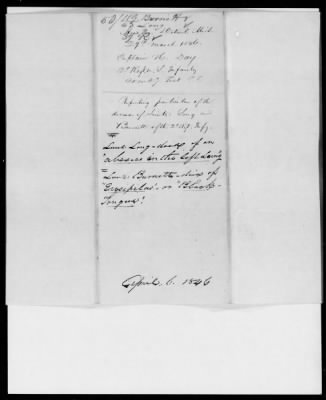 Burnett
Long
Detroit Mich.
29th March 1846
Captain H. Day
2d Regt. U. S. Infantry
Comdg
Reporting particulars of the
decease of Lieuts. Long and
Burnett of the 2d Regt. Infy.
Lieut Long died of an
abscess in the left Lung
Lieut: Burnett died of
"Erysipelas" or "Black-
Tongue".
April. 6. 1846